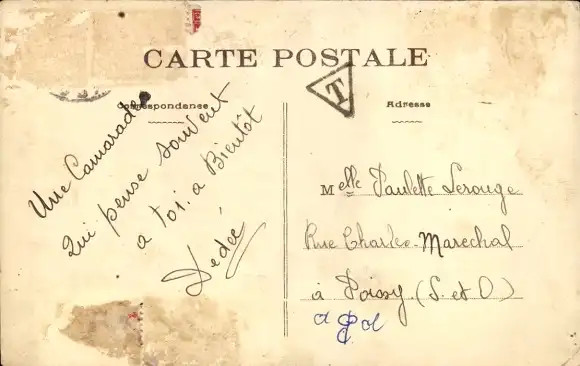 CARTE POSTALE
Correspondance
Adresse
T
Une Camarade
Qui pense souvent
a toi. a Bientôt
Dédée
Melle Paulette Lerouge
Rue Charles Marechal
à Poissy (S. et O)